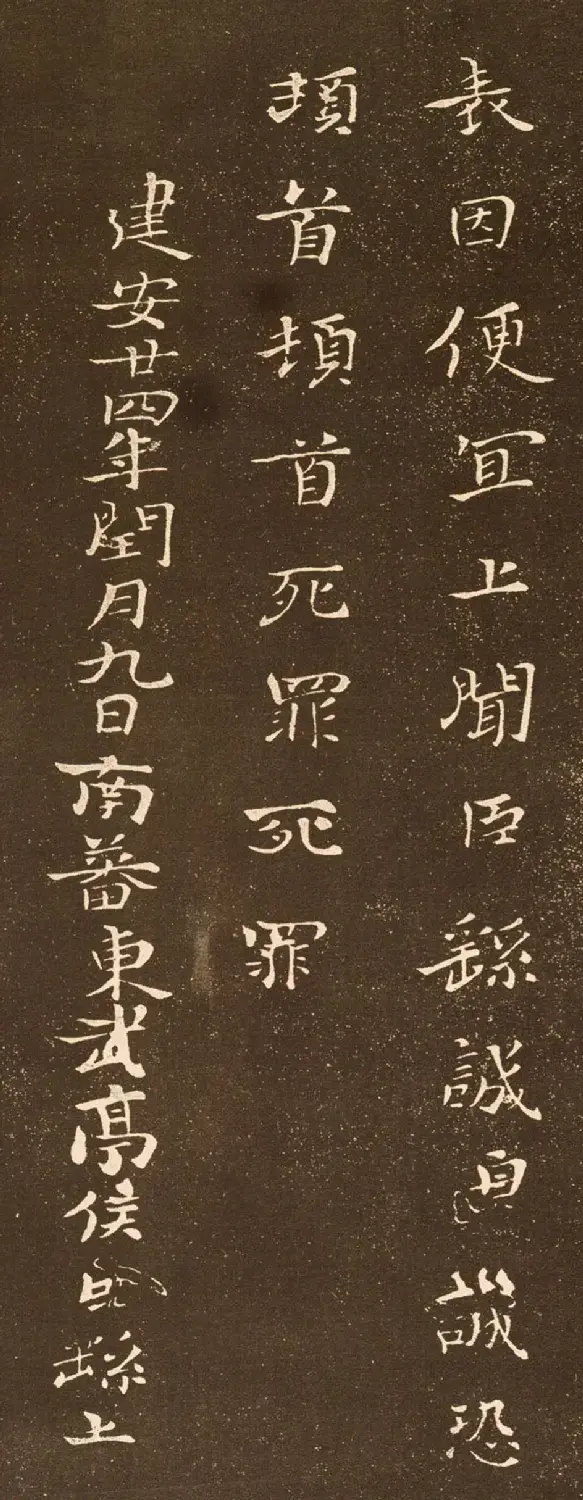 表因便冝上聞臣繇誠皇誠恐
頓首頓首死罪死罪
建安廿四年閏月九日南蕃東武亭侯臣繇上